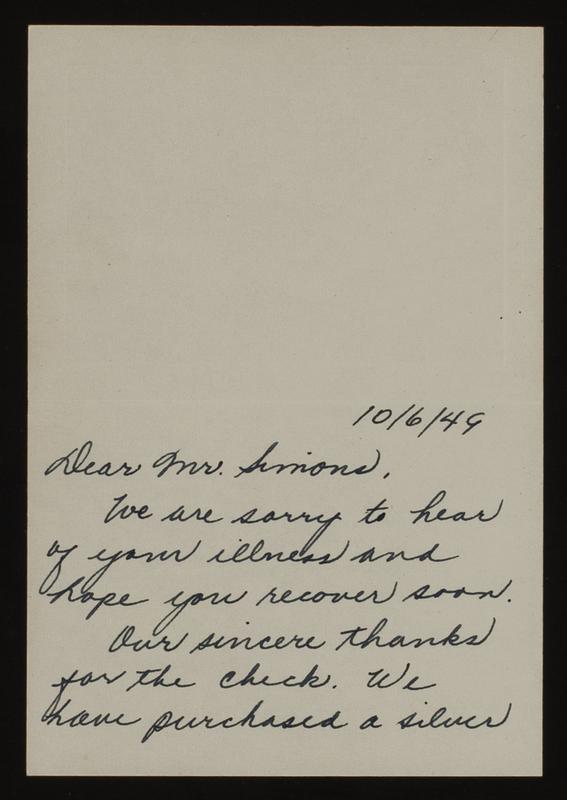 10/6/49
Dear Mr. Simons,
We are sorry to hear
of your illness and
hope you recover soon.
Our sincere thanks
for the check. We
have purchased a silver